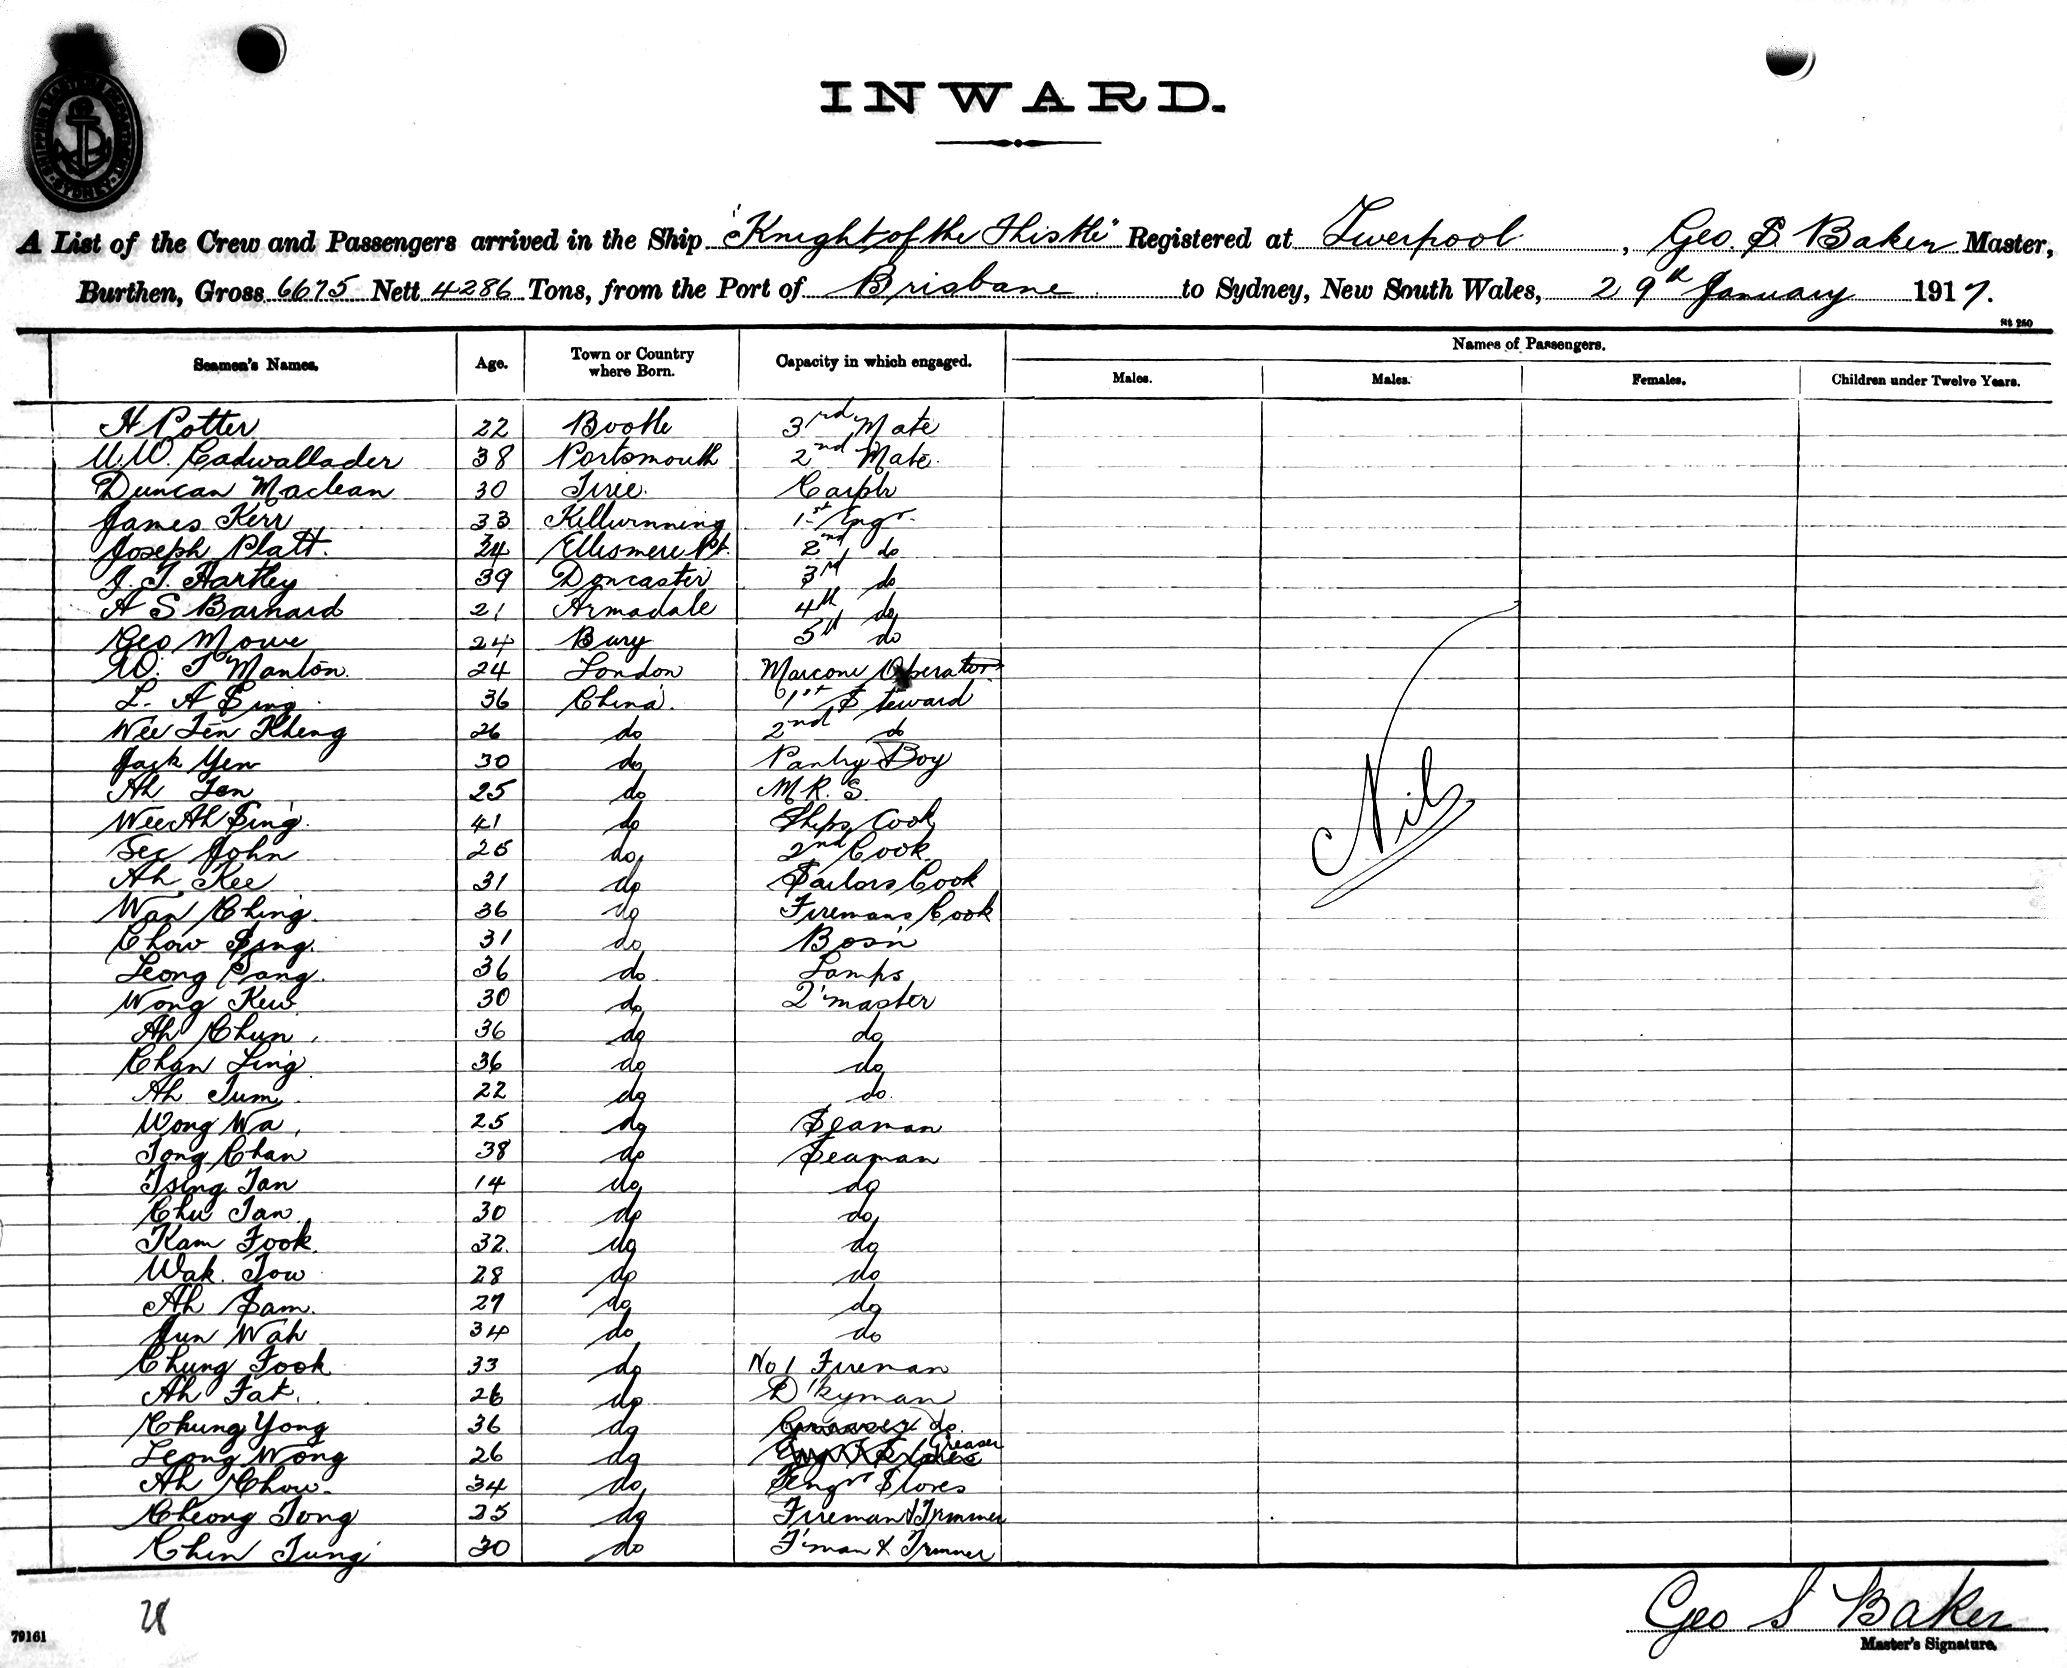 INWARD.
A List of the Crew and Passengers arrived in the Ship "Knight of the Thistle" Registered at Liverpool, Geo. S Baker Master,
Burthen, Gross 6675 Nett 4286 Tons, from the Port of Brisbane to Sydney, New South Wales, 29th January 1917.
St 250
Seamen's Names. Age. Town or Country where Born. Capacity in which engaged. Names of Passengers.
Males. Males. Females. Children under Twelve Years.
H Potter 22 Bootle 3rd Mate
W.W. Cadwallader 38 Portsmouth 2nd Mate.
Duncan Maclean 30 Tiree. Carptr
James Kerr 33 Killwinning 1st Engr.
Joseph Platt. 34 Ellismere Pt. 2nd do
J. T. Hartley 39 Doncaster 3rd do
A S Barnard 21 Armadale 4th do
Geo Mowe 24 Bury 5th do
W. T Manton. 24 London Marconi Operator
L. A Sing 36 China. 1st Steward
Wee Ten Kheng 26 do 2nd do
Jack Yen 30 do Pantry Boy
Ah Fen 25 do M.R.S.
Wee Ah Sing. 41 do Ships Cook
See John 25 do 2nd Cook
Ah Kee 31 do Sailors Cook
Wan Ching. 36 do Firemans Cook
Chow Sang. 31 do Bosn
Leong Pang. 36 do Lamps
Wong Kew. 30 do Q'master
Ah Chun, 36 do do
Chan Ling 36 do do
Ah Tum. 22 do do.
Wong Wa, 25 do Seaman
Tong Chan 38 do Seaman
Tsing Tan 14 do do
Chu Tan 30 do do
Kam Fook. 32. do do
Wak. Tow 28 do do
Ah Sam. 27 do do
Jun Wah 34 do do
Chung Fook 33 do No 1 Fireman
Ah Fat. 26 do D'kyman
Chung Yong 36 do Greaser do.
Leong Wong 26 do Greaser
Ah Chow. 34 do Engrs Stores
Cheong Tong 25 do Fireman & Trimmer
Chin Tung 30 do F'man & Trimmer
Nil
28
Geo S Baker
79161
Master's Signature.